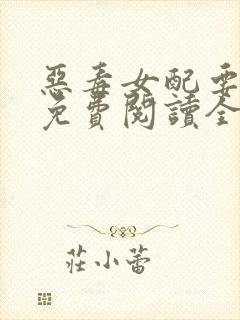 惡毒女配要
免費閱讀全
莊小蕾